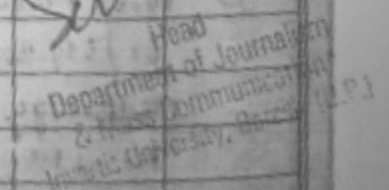 Head
Department of Journalism
& Mass Communication
University, (U.P.)